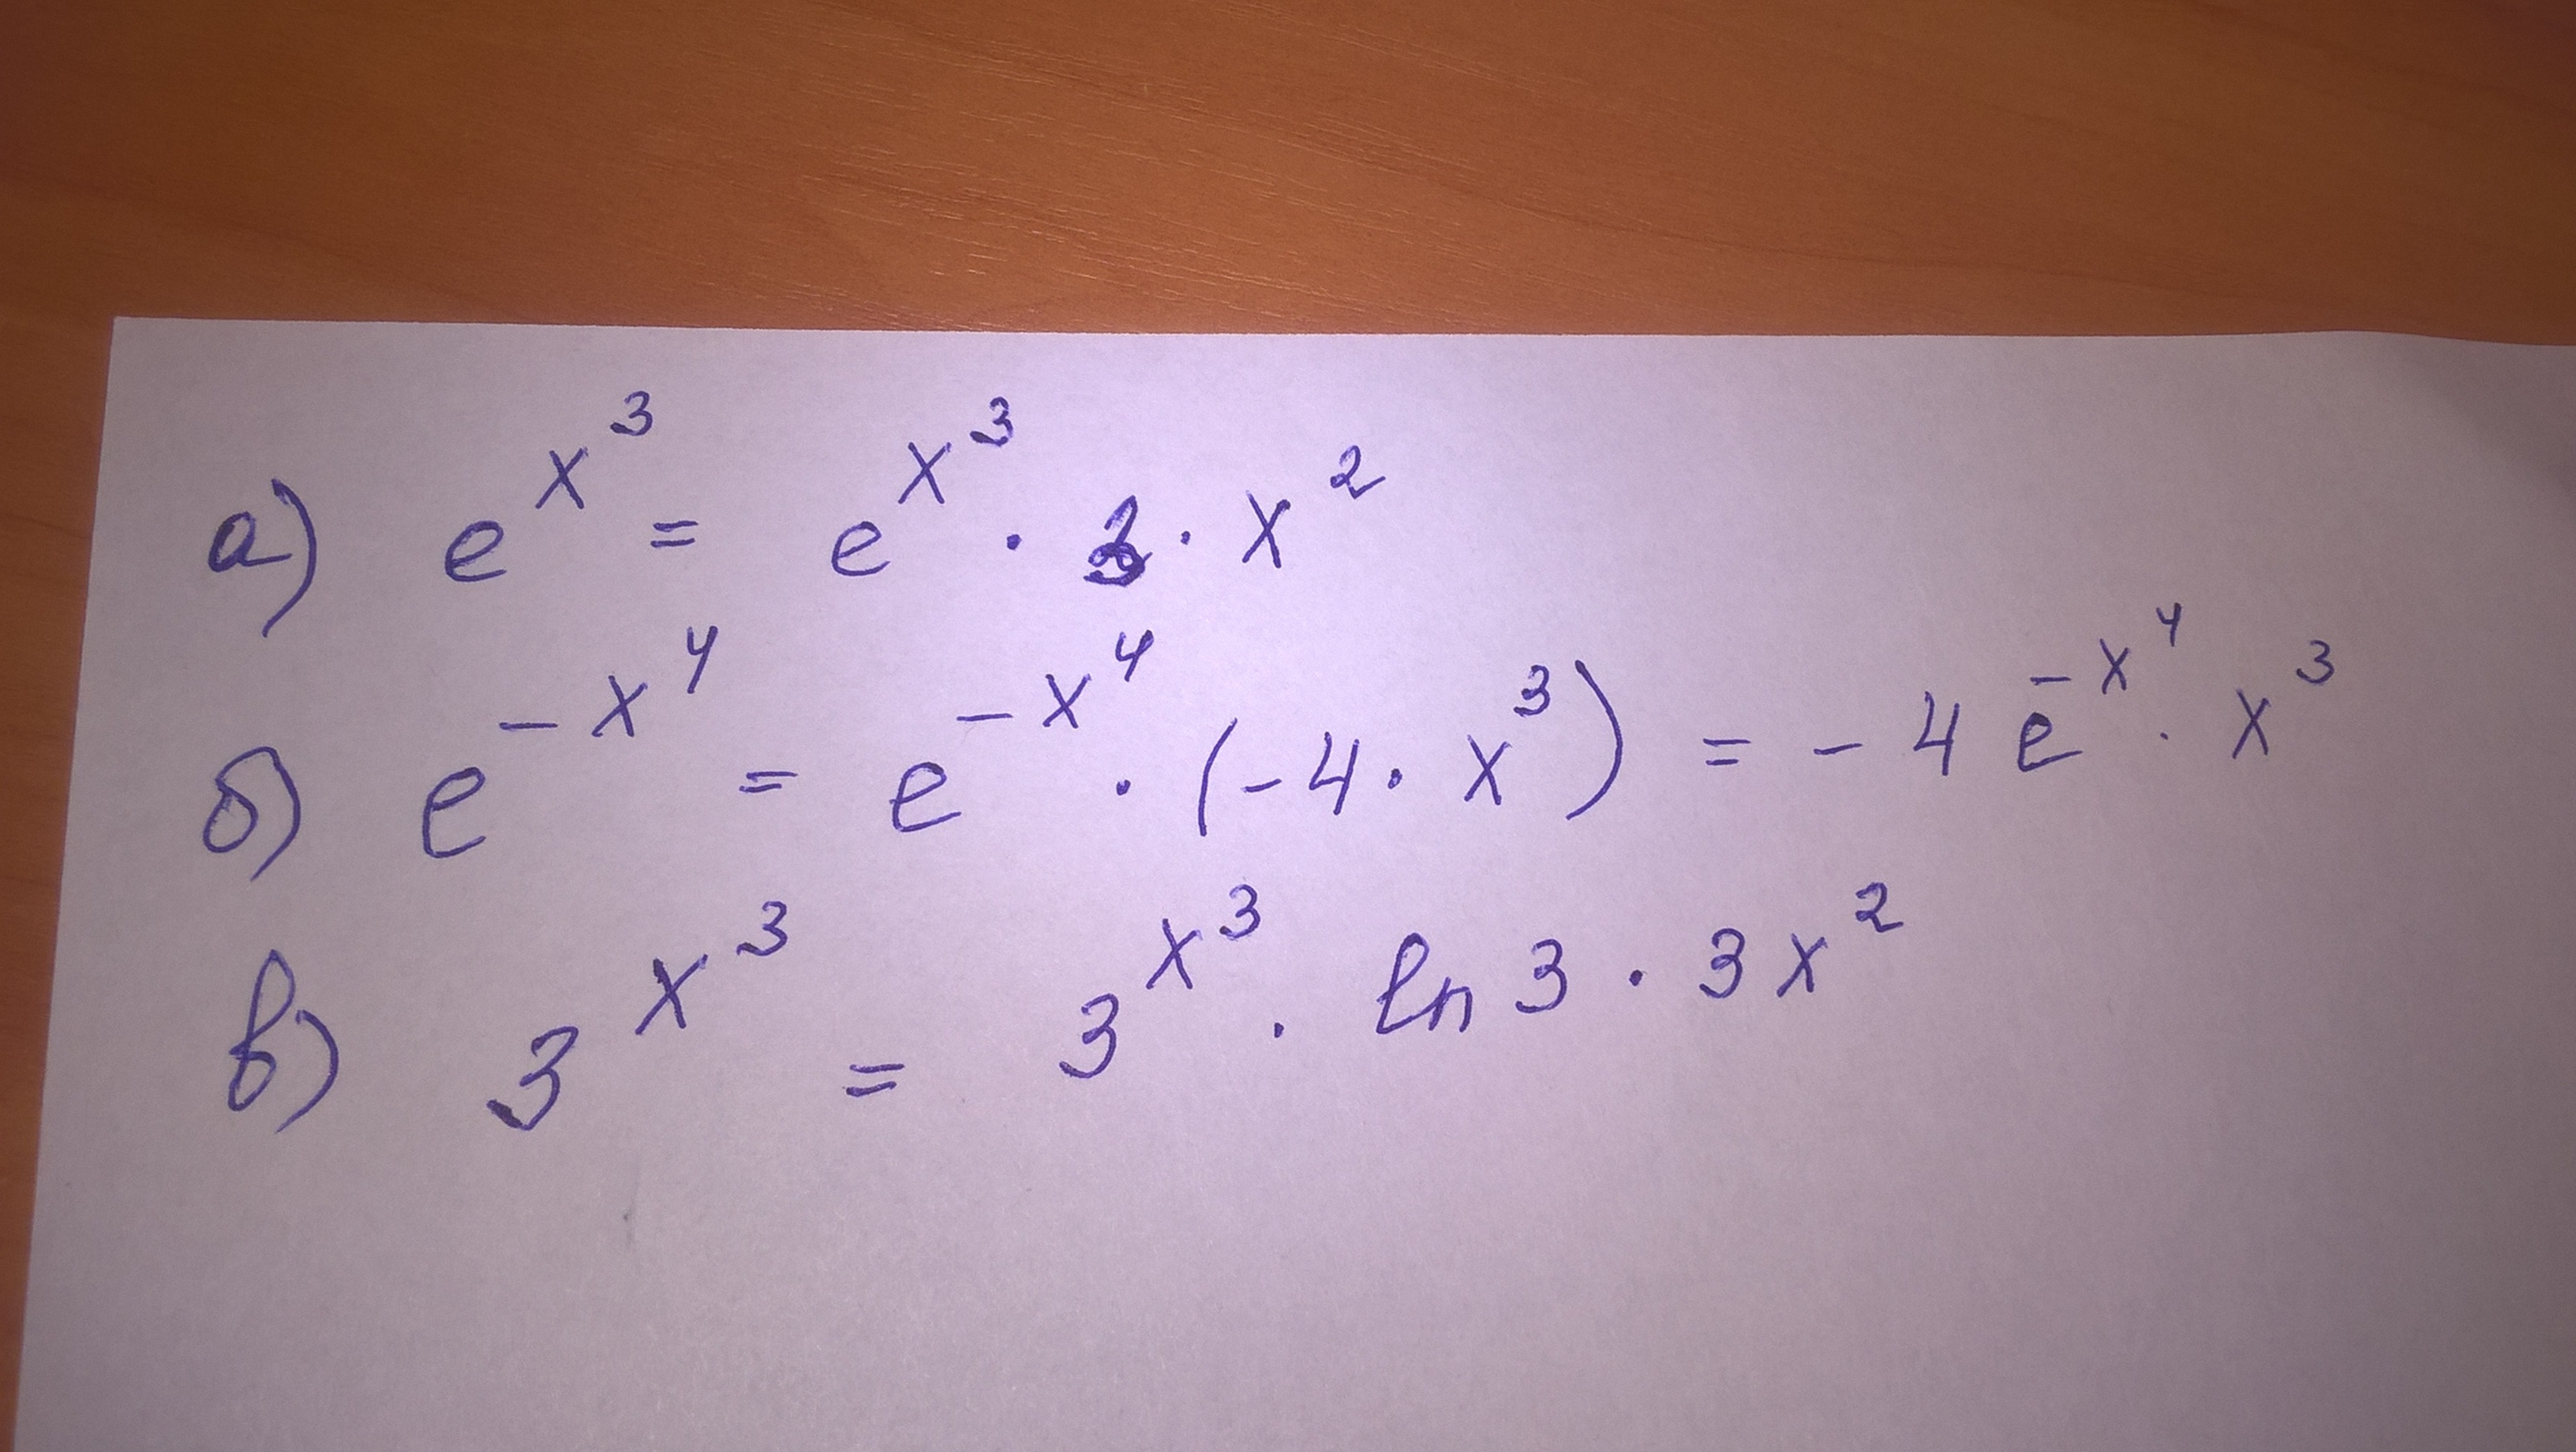 а) e^{x^3} = e^{x^3} · 3 · x^2
б) e^{-x^4} = e^{-x^4} · (-4 · x^3) = -4 e^{-x^4} · x^3
в) 3^{x^3} = 3^{x^3} · ln 3 · 3x^2